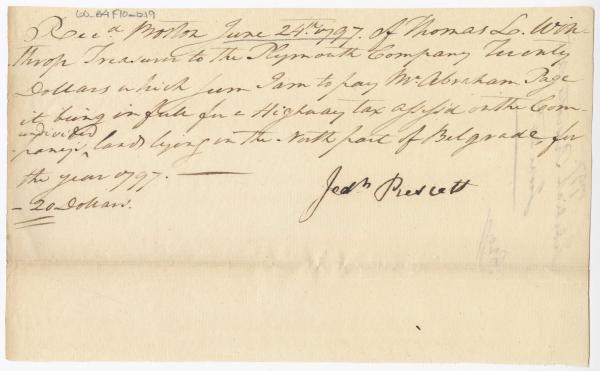 60-B4F10-019
Rec.d Boston June 24th 1797. of Thomas L. Win-
throp Treasurer to the Plymouth Company Twenty
Dollars which sum I am to pay Mr Abraham Page
it being in full for a Highway tax assess'd on the Com-
undivided
pany's ^ lands lying in the North part of Belgrade for
the year 1797. —
- 20 Dollars.
Jedh Prescott